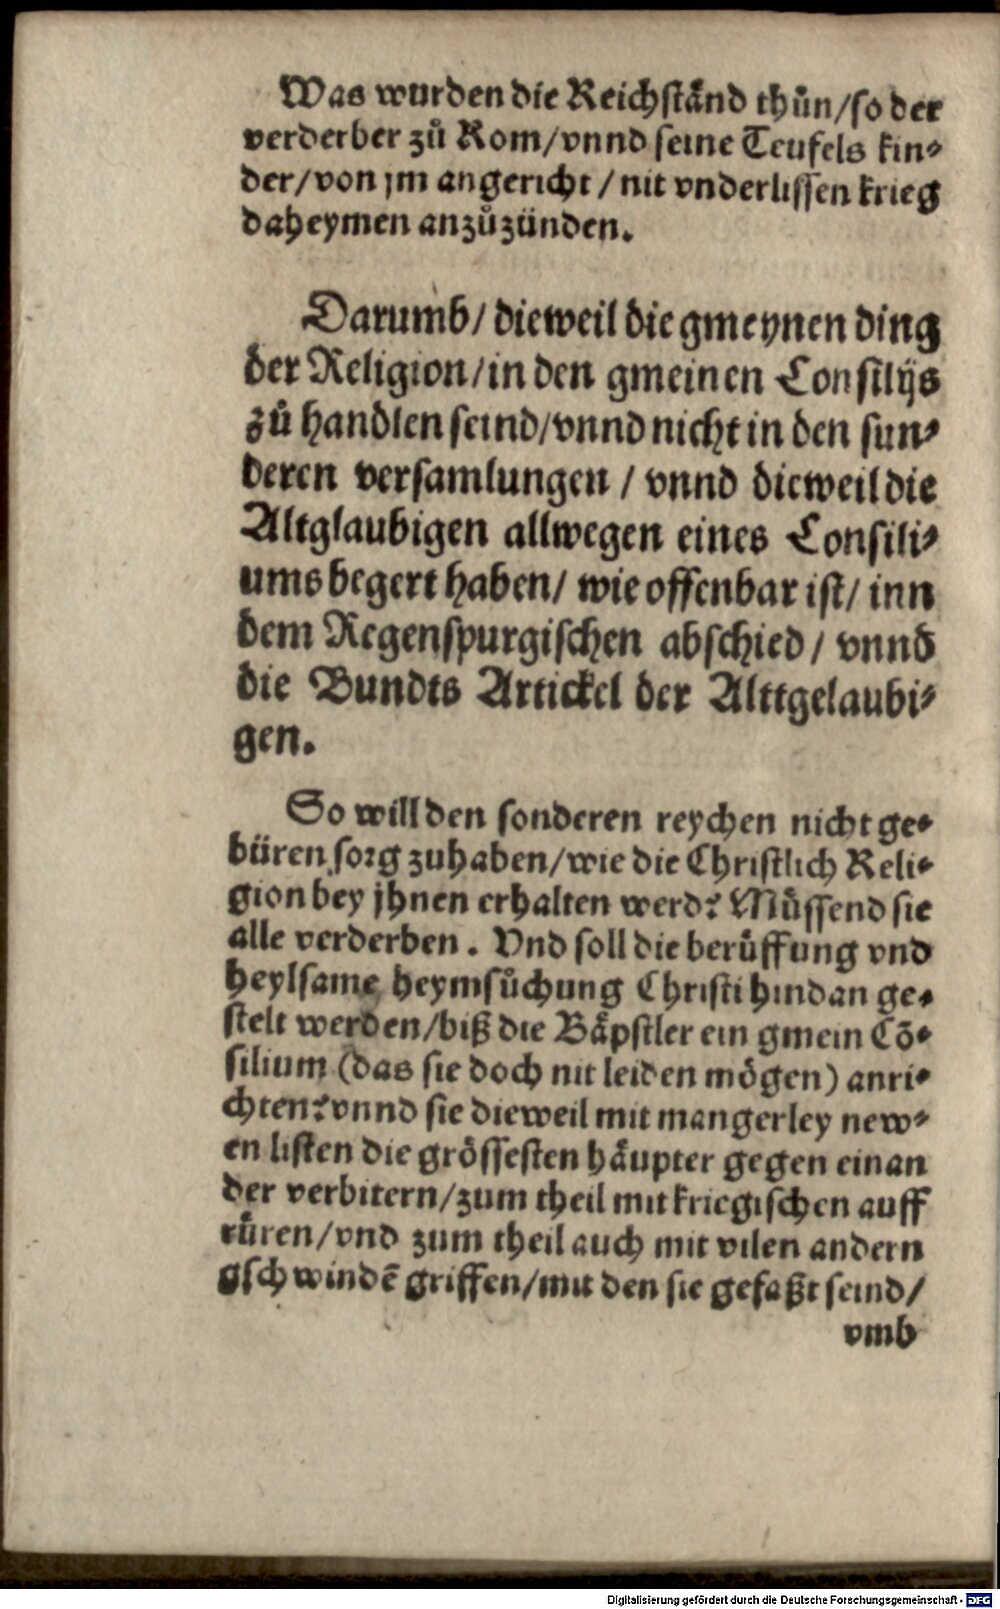 Was wurden die Reichstånd thůn/so der
verderber zů Rom/vnnd seine Teufels kin⸗
der/von jm angericht/nit vnderlissen krieg
daheymen anzůzünden.
Darumb/dieweil die gmeynen ding
der Religion/in den gmeinen Consilijs
zů handlen seind/vnnd nicht in den sun⸗
deren versamlungen/vnnd dieweil die
Altglaubigen allwegen eines Consili⸗
ums begert haben/wie offenbar ist/inn
dem Regenspurgischen abschied/vnnd
die Bundts Artickel der Alttgelaubi⸗
gen.
So will den sonderen reychen nicht ge⸗
büren sorg zuhaben/wie die Christlich Reli⸗
gion bey jhnen erhalten werd? Můssend sie
alle verderben. Vnd soll die berůffung vnd
heylsame heymsůchung Christi hindan ge⸗
stelt werden/biß die Båpstler ein gmein Cõ⸗
silium (das sie doch nit leiden mögen) anri⸗
chten? vnnd sie dieweil mit mangerley new⸗
en listen die grössesten håupter gegen einan
der verbitern/zum theil mit kriegischen auff
růren/vnd zum theil auch mit vilen andern
gschwindẽ griffen/mit den sie gefaßt seind/
vmb
Digitalisierung gefördert durch die Deutsche Forschungsgemeinschaft - DFG